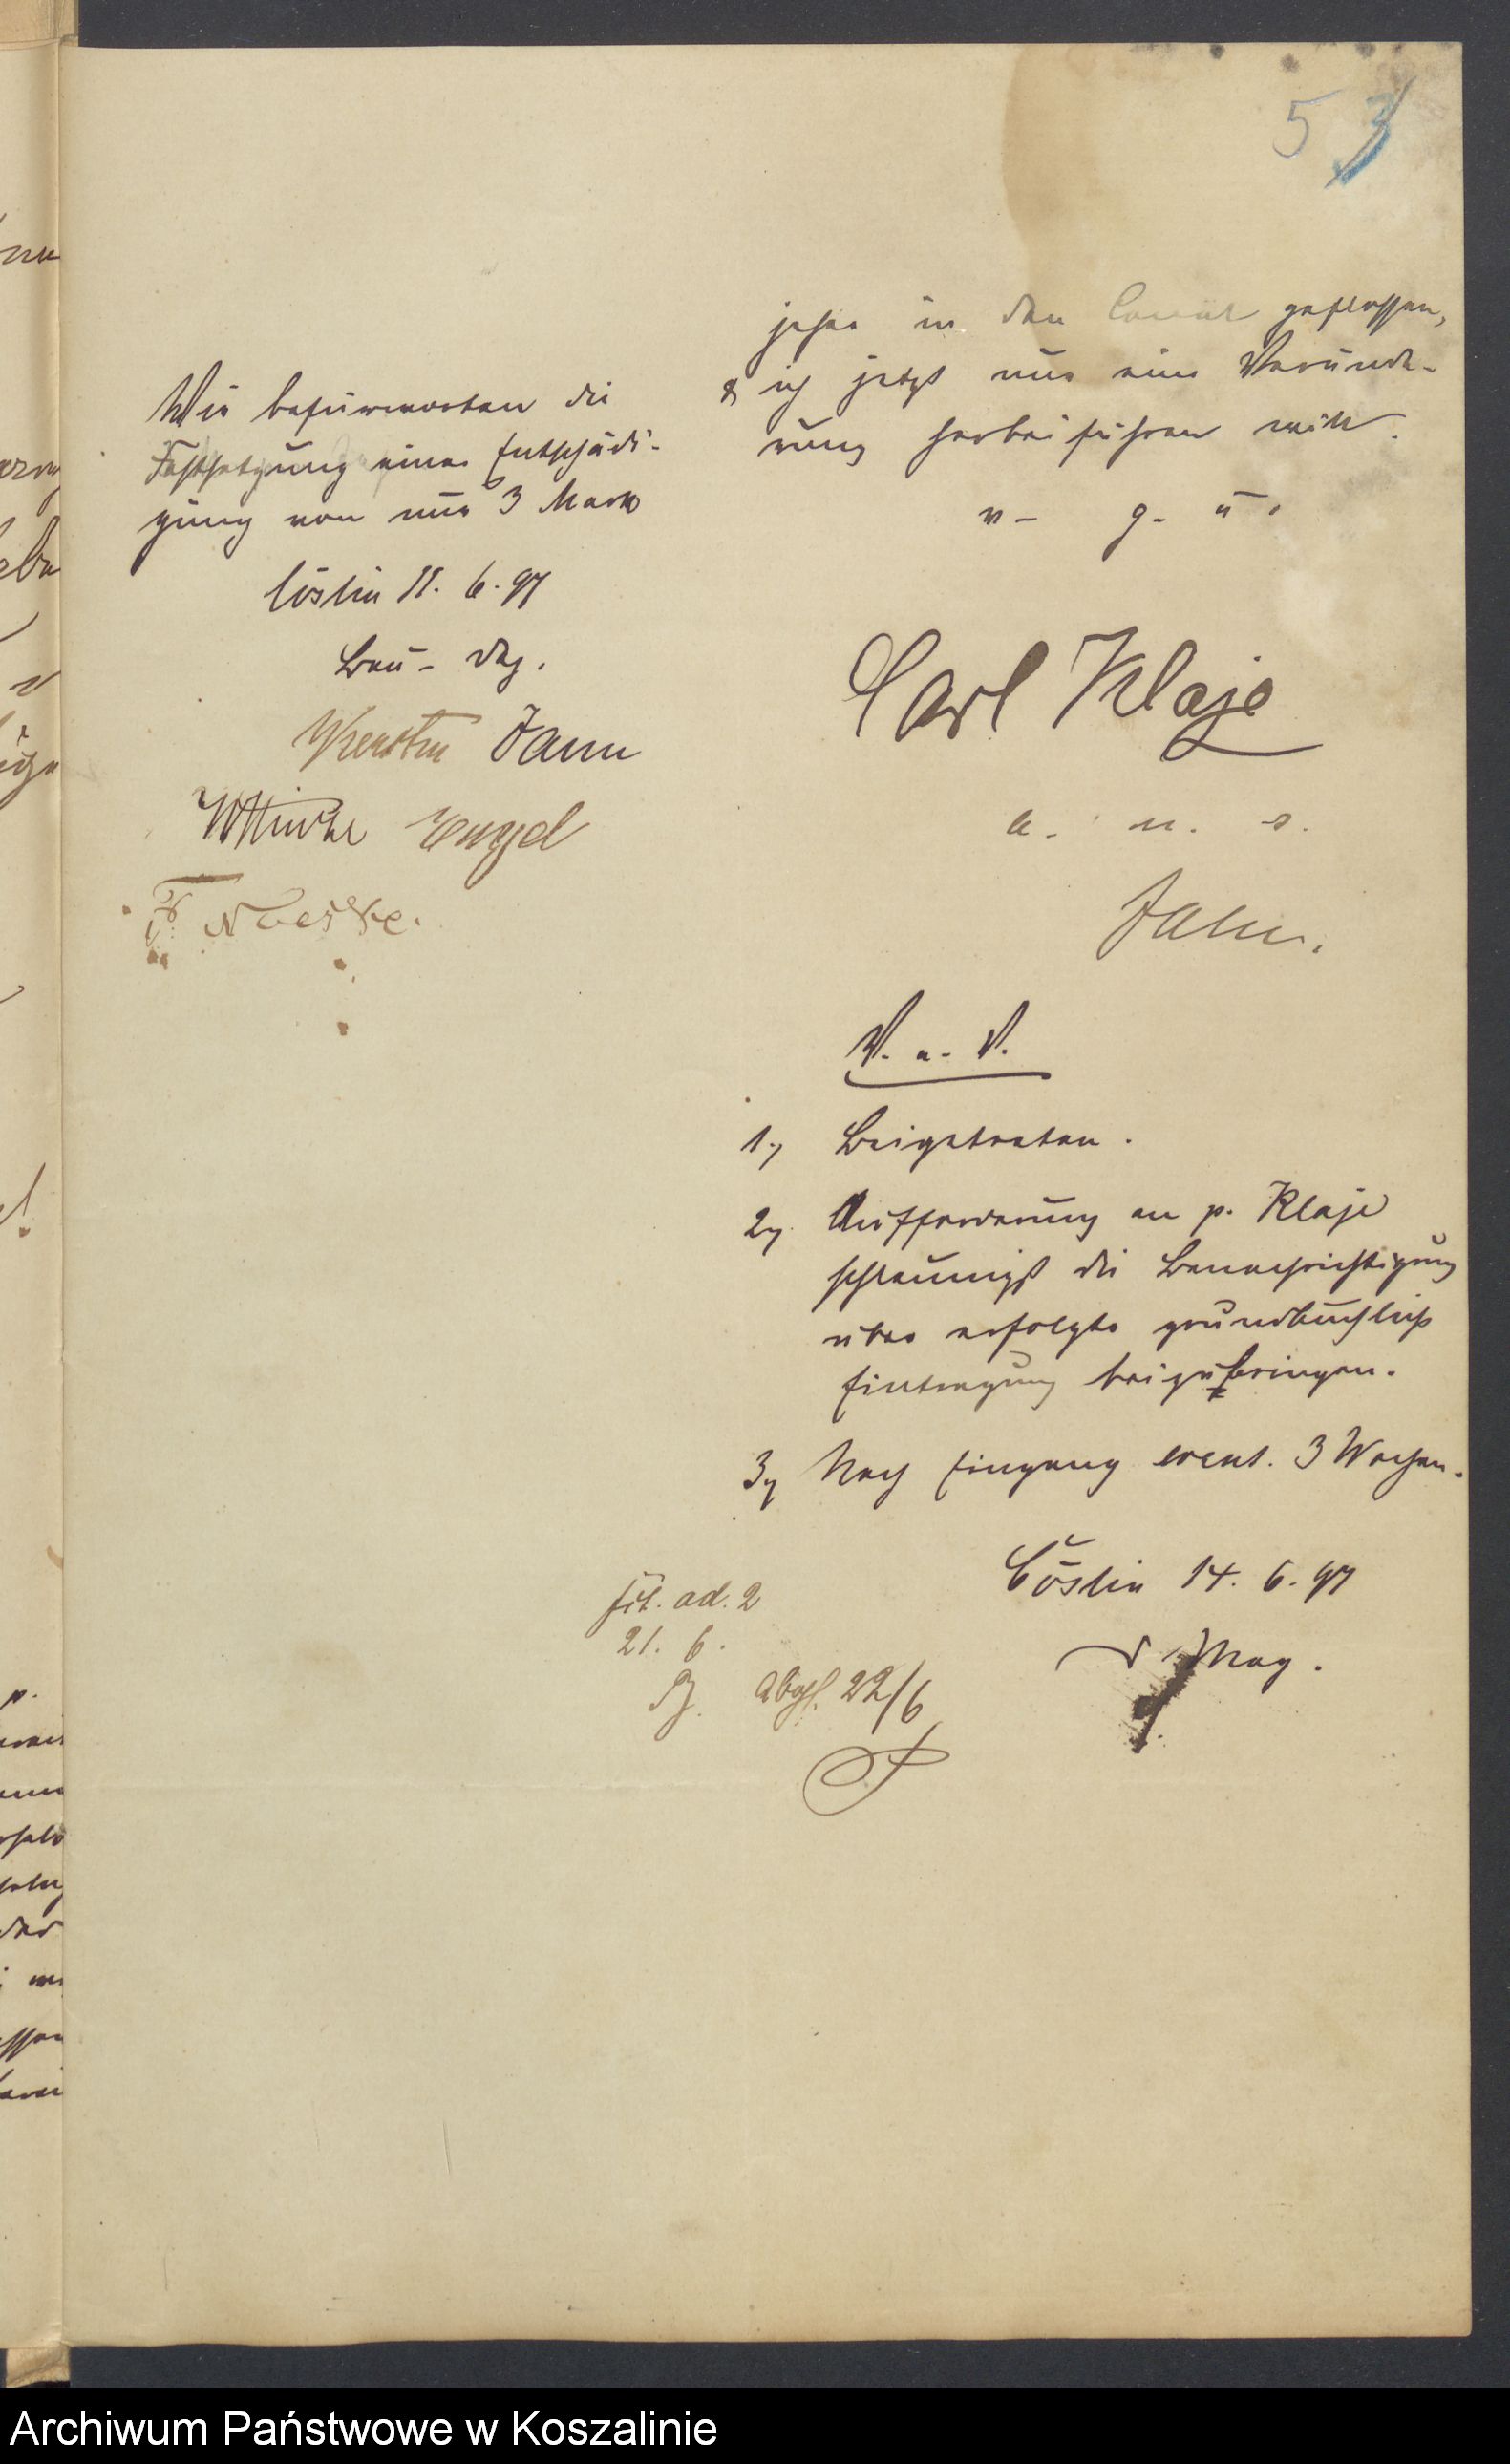 53
Wir befürworten die
Festsetzung einer Entschädi-
gung von nur 3 Mark
Cöslin 11. 6. 97
Bau-Dep.
Jann
Engel
F. Noeske.
jeher in den Canal geflossen,
& ich jetzt nur eine Verände-
rung herbeiführen will.
v- g. u.
Carl Klaje
a. u. s.
Jann.
V. u. V.
1, Beigetreten.
2, Aufforderung an p. Klaje
schleunigst die Benachrichtigung
über erfolgte grundbuchlich
Eintragung beizubringen.
3, Nach Eingang event. 3 Wochen.
Cöslin 14. 6. 97
D. Mag.
ad. 2
21. 6.
abges. 22/6
Archiwum Państwowe w Koszalinie